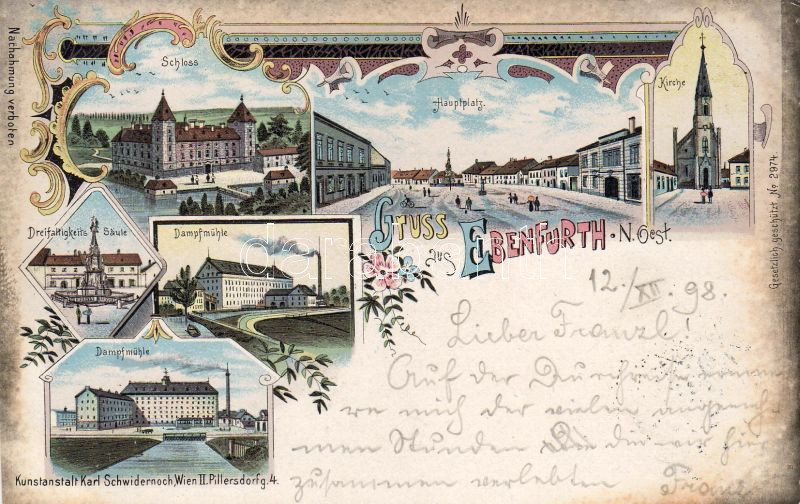 Nachahmung verboten.
Schloss
Hauptplatz.
Kirche
Dreifaltigkeits Säule
Dampfmühle
Gruss
aus Ebenfurth. N. Oest.
Gesetzlich geschützt No 2974.
Dampfmühle
12./XII. 98.
Lieber Franzl!
Auf der Durchreise
re mich der vielen angeneh-
men Stunden die wir hier
zusammen verlebten
Kunstanstalt Karl Schwidernoch, Wien II. Pillersdorfg. 4.